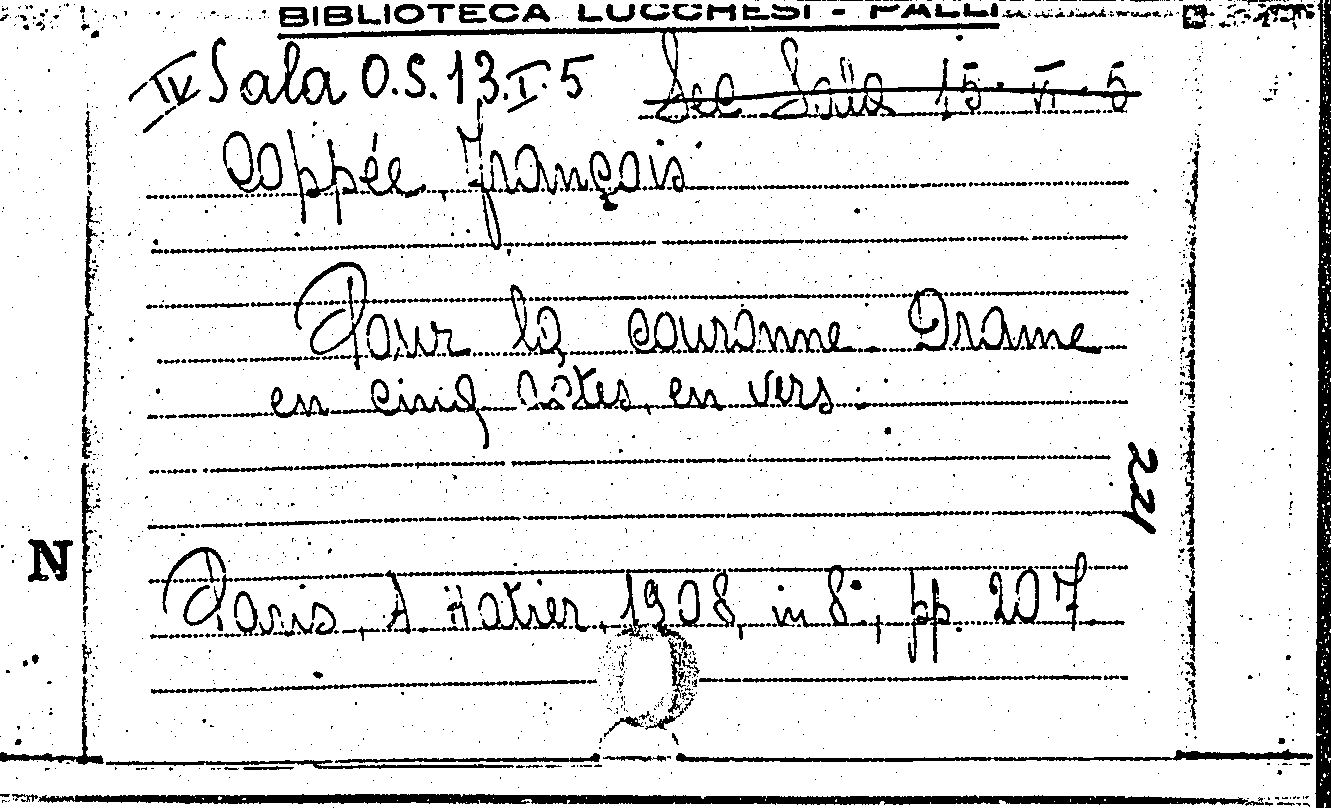 BIBLIOTECA LUCCHESI - PALLI
IV Sala O.S. 13.I.5 Sec Sala 15. VI. 5
Coppée, François
Pour la couronne. Drame
en cinq actes, en vers.
221
N
Paris, A Hatier, 1908, in 8°, pp. 207.